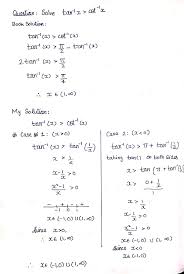 Question: Solve tan⁻¹x > cot⁻¹x
Book Solution:
tan⁻¹(x) > cot⁻¹(x)
tan⁻¹(x) > π/2 − tan⁻¹(x)
2.tan⁻¹(x) > π/2
tan⁻¹(x) > π/4
∴ x ∈ (1,∞)
My Solution:
Case 1: (x>0)
tan⁻¹(x) > tan⁻¹(1/x)
x > 1/x
x-1/x > 0
x²-1/x > 0
-1 0 1
x ∈ (-1,0) ∪ (1,∞)
Since x>0,
∴ x ∈ (1,∞)
Case 2: (x<0)
tan⁻¹(x) > π + tan⁻¹(1/x)
taking tan() on both sides
x > tan(π + tan⁻¹(1/x))
x > 0 + 1/x
x-1/x > 0
x ∈ (-1,0) ∪ (1,∞)
Since x<0
∴ x ∈ (-1,0)
∴ x ∈ (-1,0) ∪ (1,∞)